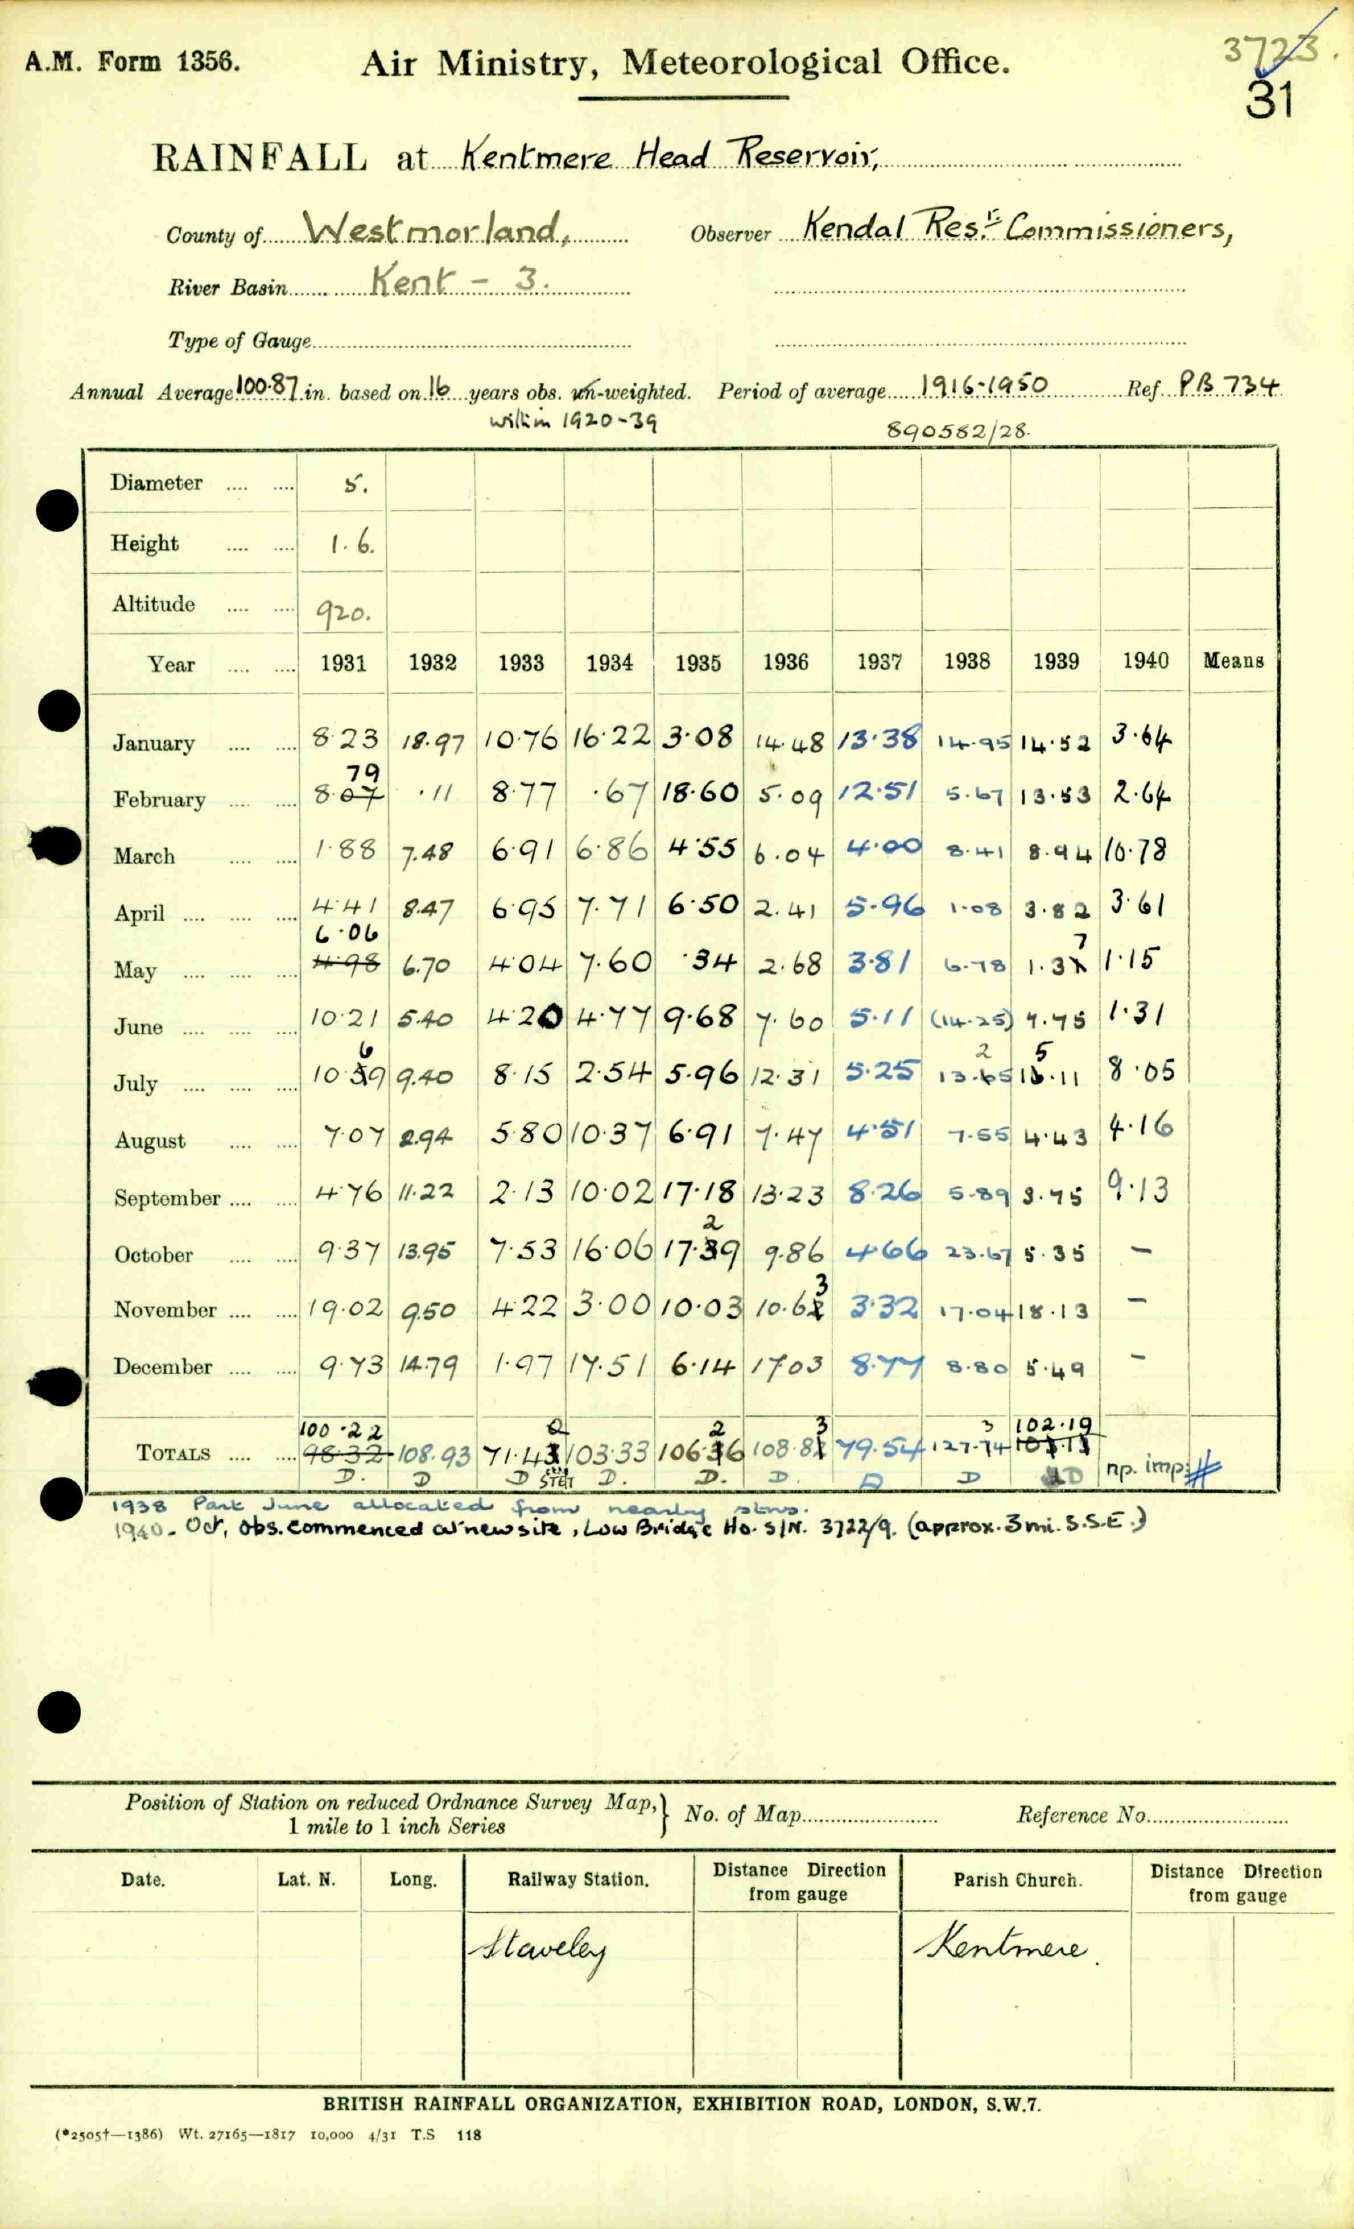 A.M. Form 1356. Air Ministry, Meteorological Office. 3723.
31
RAINFALL at Kentmere Head Reservoir,
County of Westmorland, Observer Kendal Resr. Commissioners,
River Basin Kent - 3.
Type of Gauge
Annual Average 100.87 in. based on 16 years obs. un-weighted. Period of average 1916-1950 Ref. PB 734
within 1920-39 890582/28.
Diameter .... .... 5.
Height .... .... 1.6.
Altitude .... .... 920.
Year .... .... 1931 1932 1933 1934 1935 1936 1937 1938 1939 1940 Means
January .... .... 8.23 18.97 10.76 16.22 3.08 14.48 13.38 14.95 14.52 3.64
79
February .... .... 8.07 .11 8.77 .67 18.60 5.09 12.51 5.67 13.53 2.64
March .... .... 1.88 7.48 6.91 6.86 4.55 6.04 4.00 8.41 8.94 10.78
April .... .... .... 4.41 8.47 6.95 7.71 6.50 2.41 5.96 1.08 3.82 3.61
6.06 7
May .... .... .... 4.98 6.70 4.04 7.60 .34 2.68 3.81 6.78 1.3 1.15
June .... .... .... 10.21 5.40 4.20 4.77 9.68 7.60 5.11 (14.25) 7.75 1.31
6 2 5
July .... .... .... 10.59 9.40 8.15 2.54 5.96 12.31 5.25 13.65 16.11 8.05
August .... .... 7.07 2.94 5.80 10.37 6.91 7.47 4.51 7.55 4.43 4.16
September .... .... 4.76 11.22 2.13 10.02 17.18 13.23 8.26 5.89 3.75 9.13
2
October .... .... 9.37 13.95 7.53 16.06 17.39 9.86 4.66 23.67 5.35 –
3
November .... .... 19.02 9.50 4.22 3.00 10.03 10.62 3.32 17.04 18.13 –
December .... .... 9.73 14.79 1.97 17.51 6.14 17.03 8.77 8.80 5.49 –
100.22 2 2 3 3 102.19
TOTALS .... .... 98.32 108.93 71.43 103.33 106.36 108.82 79.54 127.74 103.13
D. D D STET D. D. D. D D D np. imp. #
1938 Part June allocated from nearby stns.
1940. Oct, obs. commenced at new site, Low Bridge Ho. S/N. 3722/9. (approx. 3 mi. S.S.E.)
Position of Station on reduced Ordnance Survey Map, } No. of Map Reference No.
1 mile to 1 inch Series
Date. Lat. N. Long. Railway Station. Distance Direction from gauge Parish Church. Distance Direction from gauge
Staveley Kentmere.
BRITISH RAINFALL ORGANIZATION, EXHIBITION ROAD, LONDON, S.W.7.
(*2505†—1386) Wt. 27165—1817 10,000 4/31 T.S 118